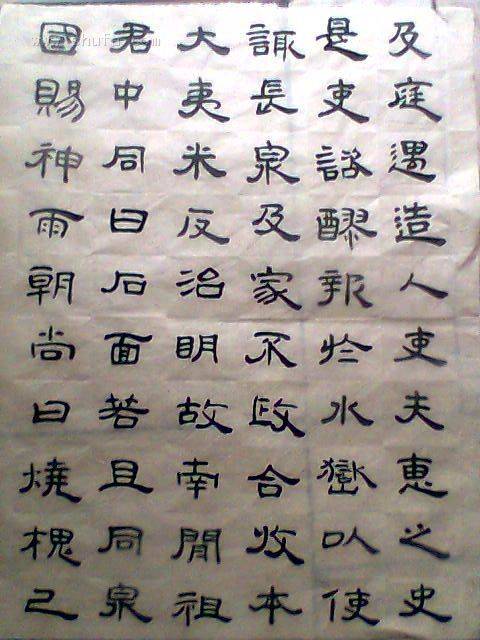 及庭遇造人吏夫惠之史
是吏諮醪報於水巒以使
諏長泉及家不政合收本
大夷米反治明故南閒祖
君中同曰石面若且同泉
國賜神雨朝尚日燒槐己